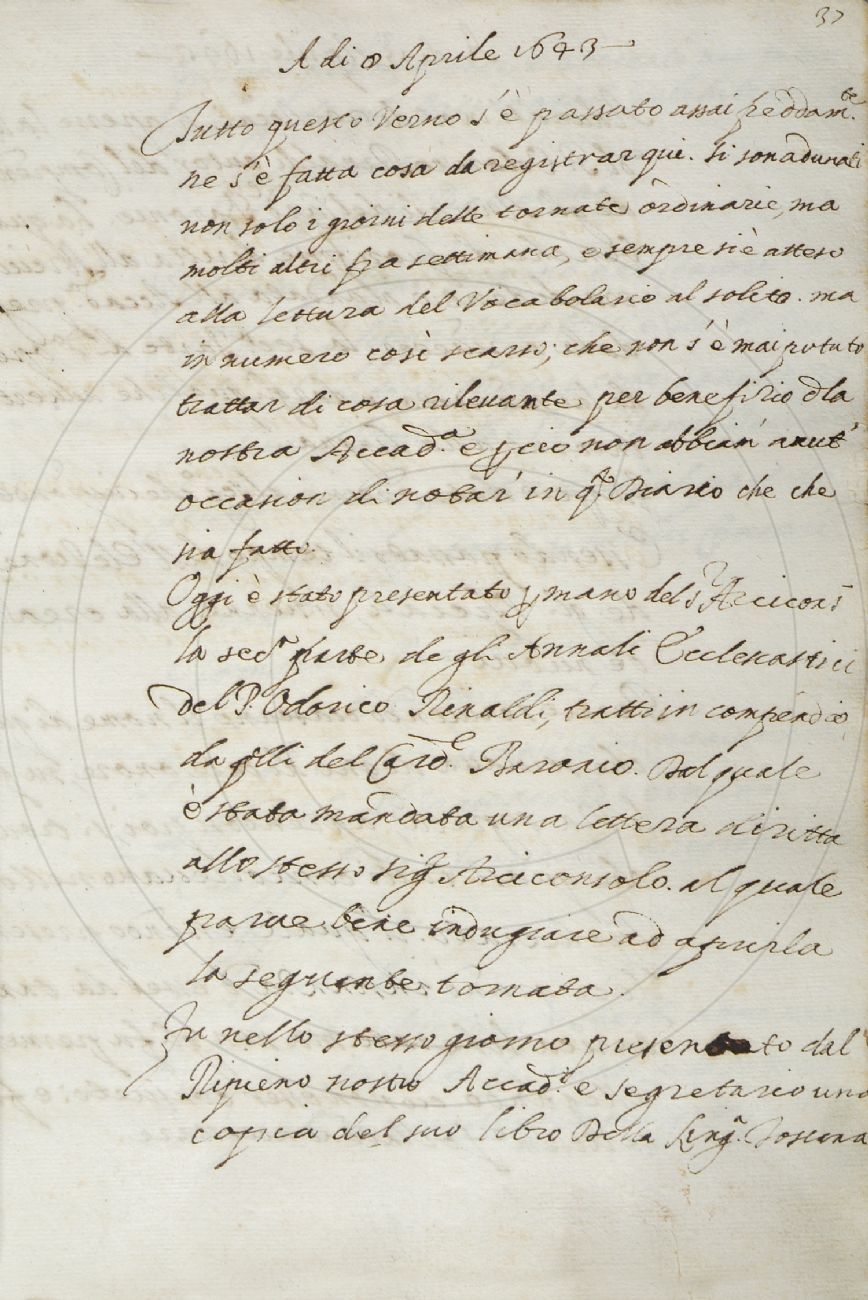 37
A di 8 Aprile 1643
Tutto questo Verno s'è passato assai freddam.te
ne s'è fatta cosa da registrar qui. si son adunati
non solo i giorni delle tornate ordinarie, ma
molti altri fra settimana, e sempre si è atteso
alla lettura del Vocabolario al solito. ma
in numero così scarso, che non s'è mai potuto
trattar di cosa rileuante per benefizio d̃la
nostra Accad.a e ꝑciò non abbian' auut'
occasion di notar' in q.to Diario che che
sia fatto.
Oggi è stato presentato ꝑ mano del S.r Arcicons.
la sec.a parte degli Annali Ecclesiastici
del P. Odorico Rinaldi, tratti in compendio,
da q̃lli del Card.l Baronio. Dal quale
è stata mandata una lettera diritta
allo stesso sig.r Arciconsolo. al quale
parue bene indugiare ad aprirla
la seguente tornata.
Fu nello stesso giorno presentato dal
Ripieno nostro Accad.o e segretario una
copia del suo libro Della Ling.a Toscana